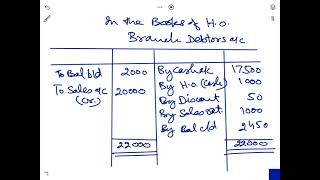 In the Books of H.O.
Branch Debtors a/c
To Bal b/d 2000 By Cash a/c 17500
To Sales a/c 20000 By H.O. (Cash) 1000
(Cr.) By Discount 50
By Sales Ret. 1000
By Bal c/d 2450
22000 22000